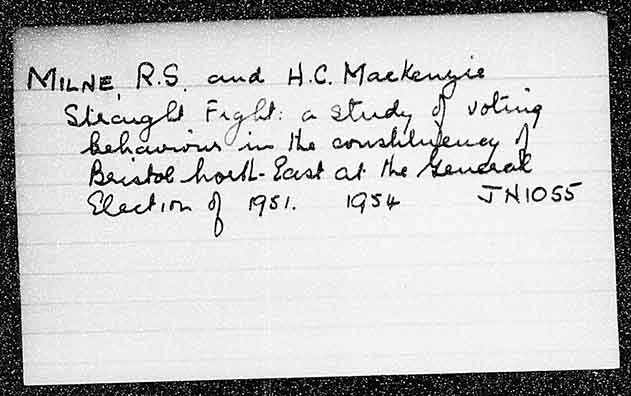 MILNE, R.S. and H.C. Mackenzie
Straight Fight: a study of voting
behaviour in the constituency of
Bristol North-East at the General
Election of 1951. 1954 JN1055